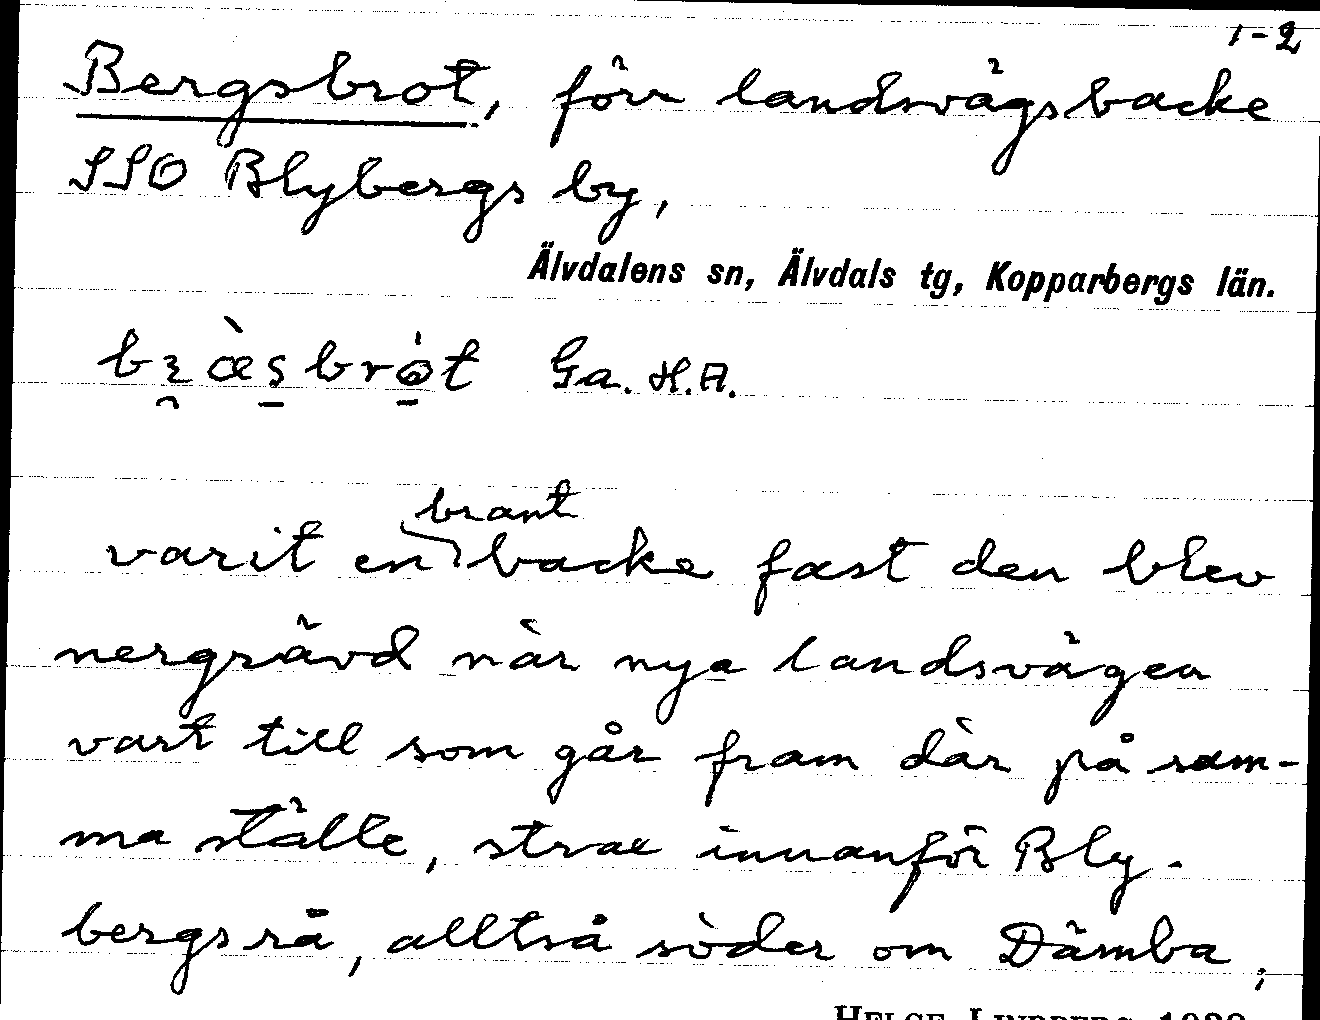 1-2
Bergsbrot, förr landsvägsbacke
SSO Blybergs by,
Älvdalens sn, Älvdals tg, Kopparbergs län.
Ga. H.A.
brant
varit en backe fast den blev
nergrävd när nya landsvägen
vart till som går fram där på sam-
ma ställe, strax innanför Bly-
bergsrå, alltså söder om Dämba,
HELGE LINDBERG